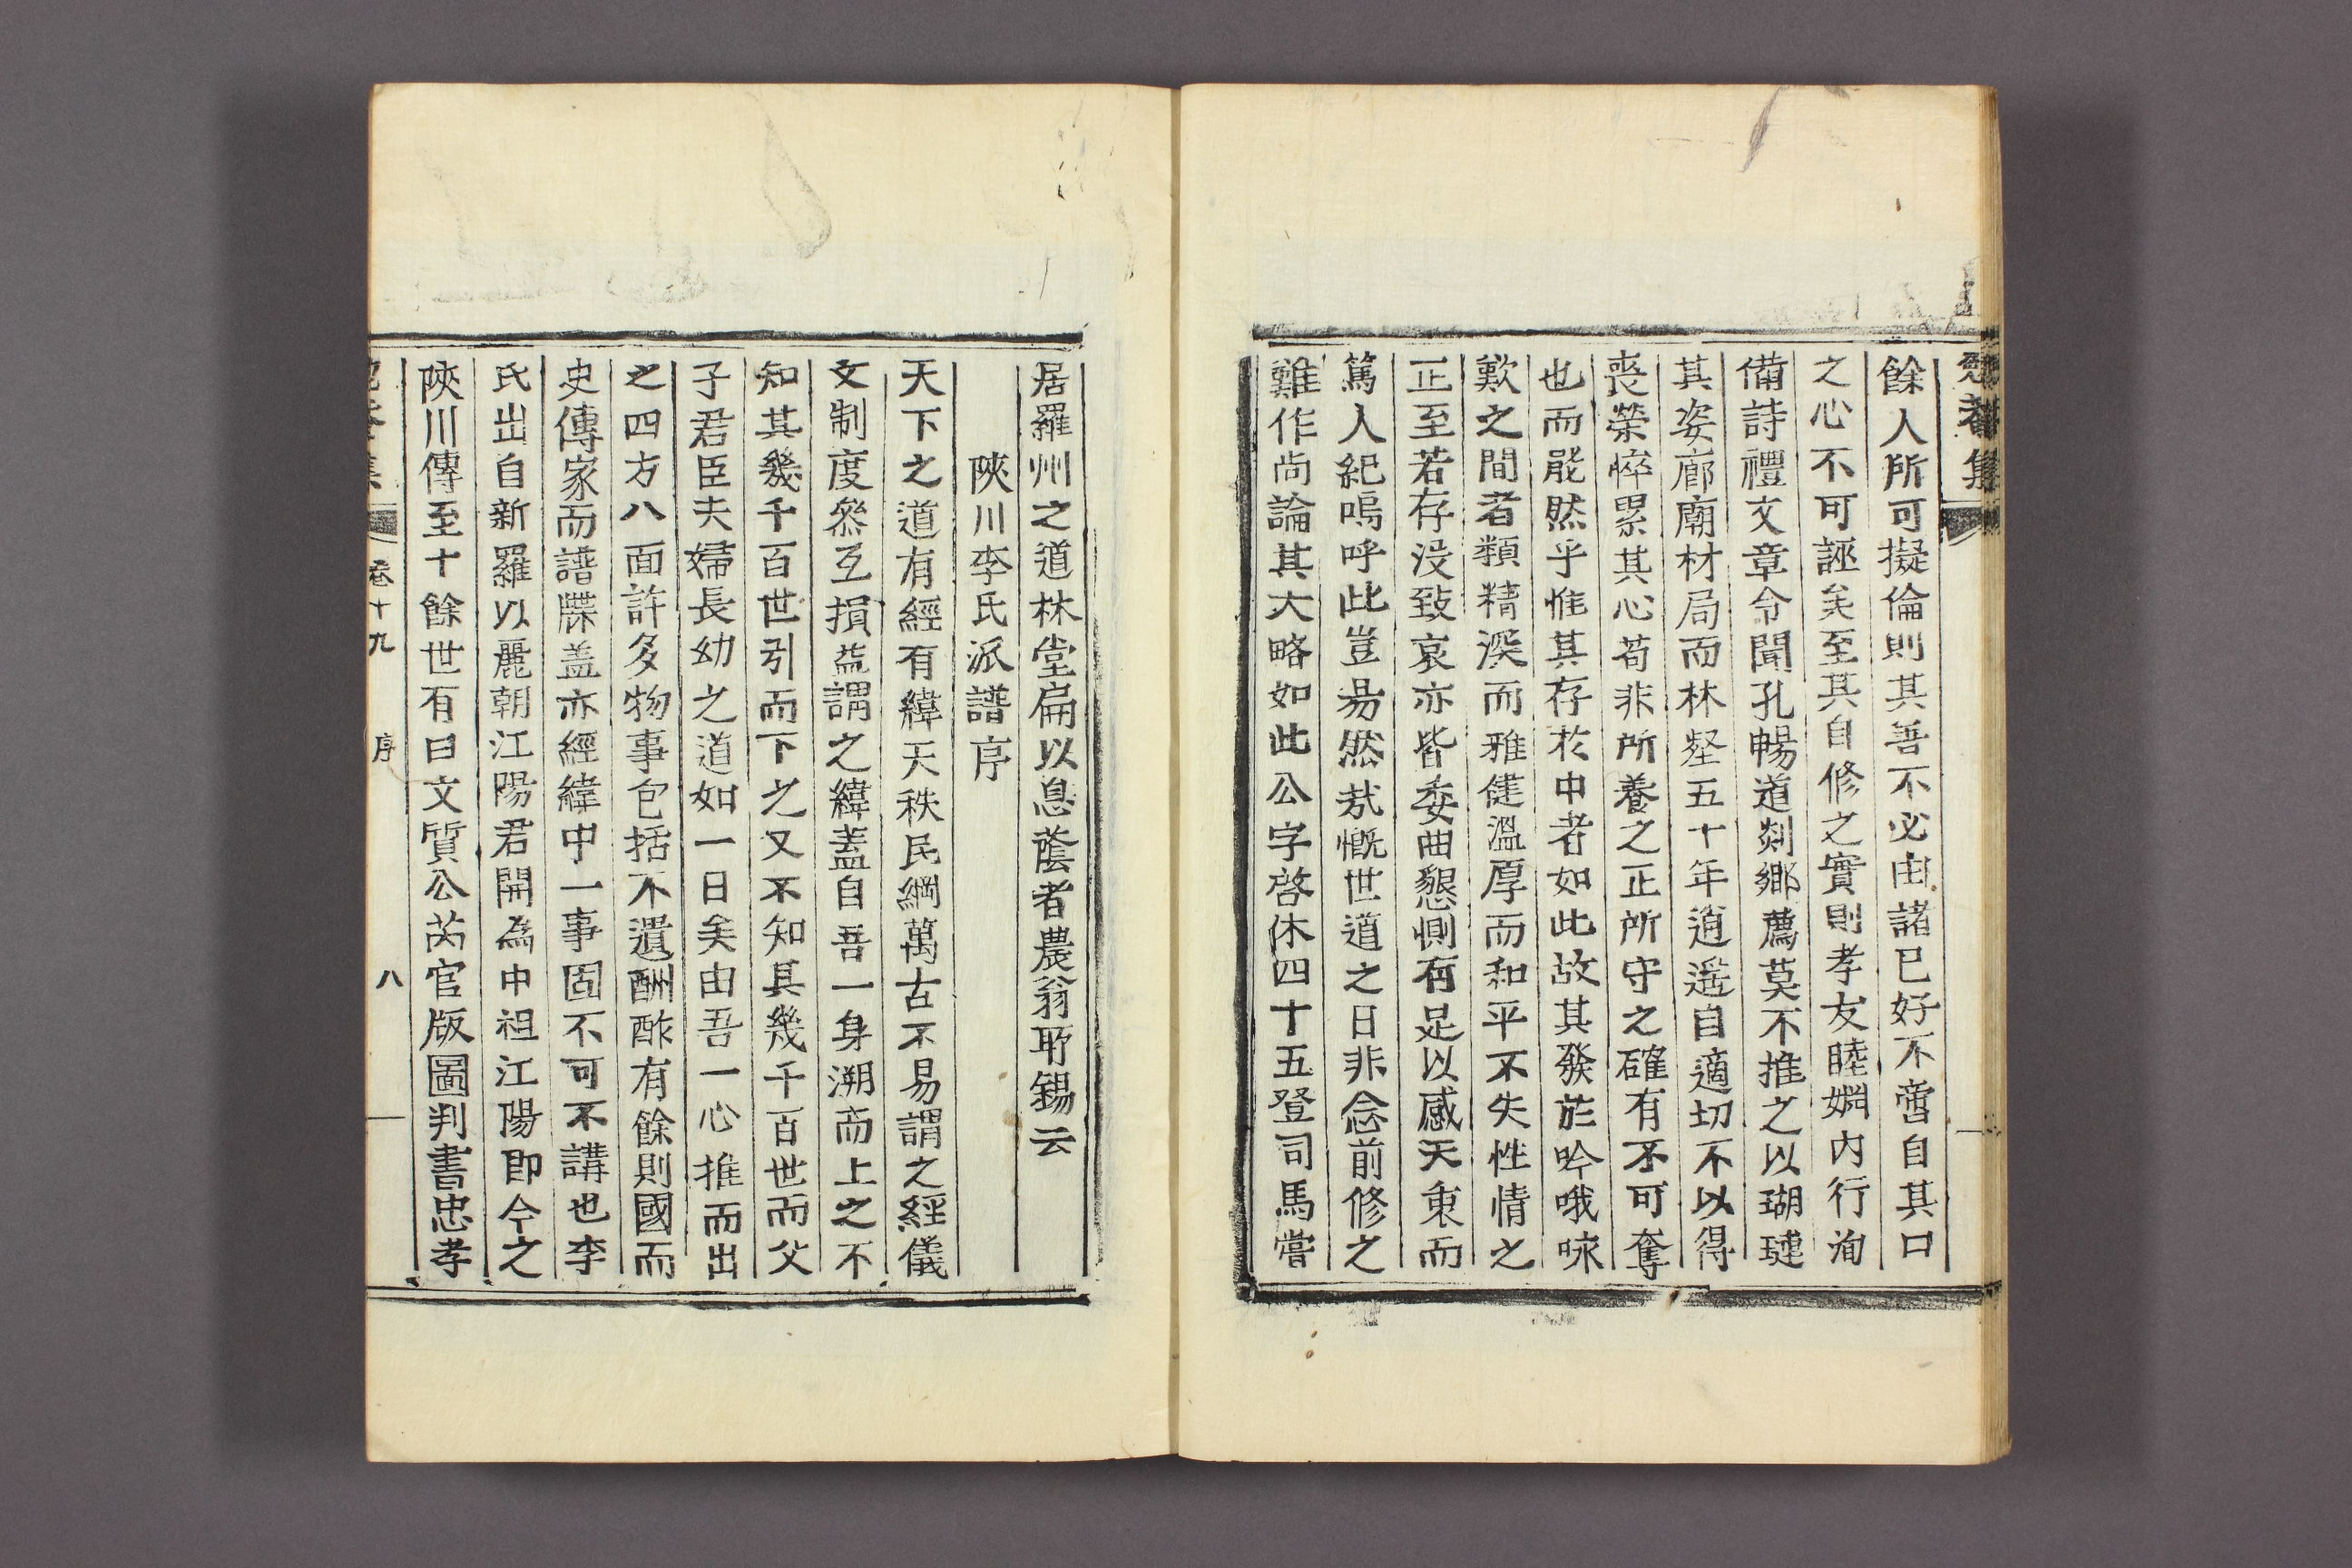 集
餘人所可擬倫則其善不必由諸已好不啻自其口
之心不可誣矣至其自修之實則孝友睦婣內行洵
備詩禮文章令聞孔暢道剡鄉薦莫不推之以瑚璉
其姿廊廟材局而林壑五十年逍遙自適切不以得
喪榮悴累其心苟非所養之正所守之確有不可奪
也而能然乎惟其存於中者如此故其發於吟哦咏
歎之間者類精深而雅健溫厚而和平不失性情之
正至若存沒致哀亦皆委曲懇惻有足以感天衷而
篤人紀嗚呼此豈易然哉慨世道之日非念前修之
難作尙論其大略如此公字啓休四十五登司馬嘗
居羅州之道林堂扁以息蔭者農翁耶錫云
陜川李氏派譜序
天下之道有經有緯天秩民綱萬古不易謂之經儀
文制度叅互損益謂之緯盖自吾一身溯而上之不
知其幾千百世引而下之又不知其幾千百世而父
子君臣夫婦長幼之道如一日矣由吾一心推而出
之四方八面許多物事包括不遺酬酢有餘則國而
史傳家而譜牒盖亦經緯中一事固不可不講也李
氏出自新羅以麗朝江陽君開為中祖江陽卽今之
陜川傳至十餘世有曰文質公芮官版圖判書忠孝
卷十九 序 八